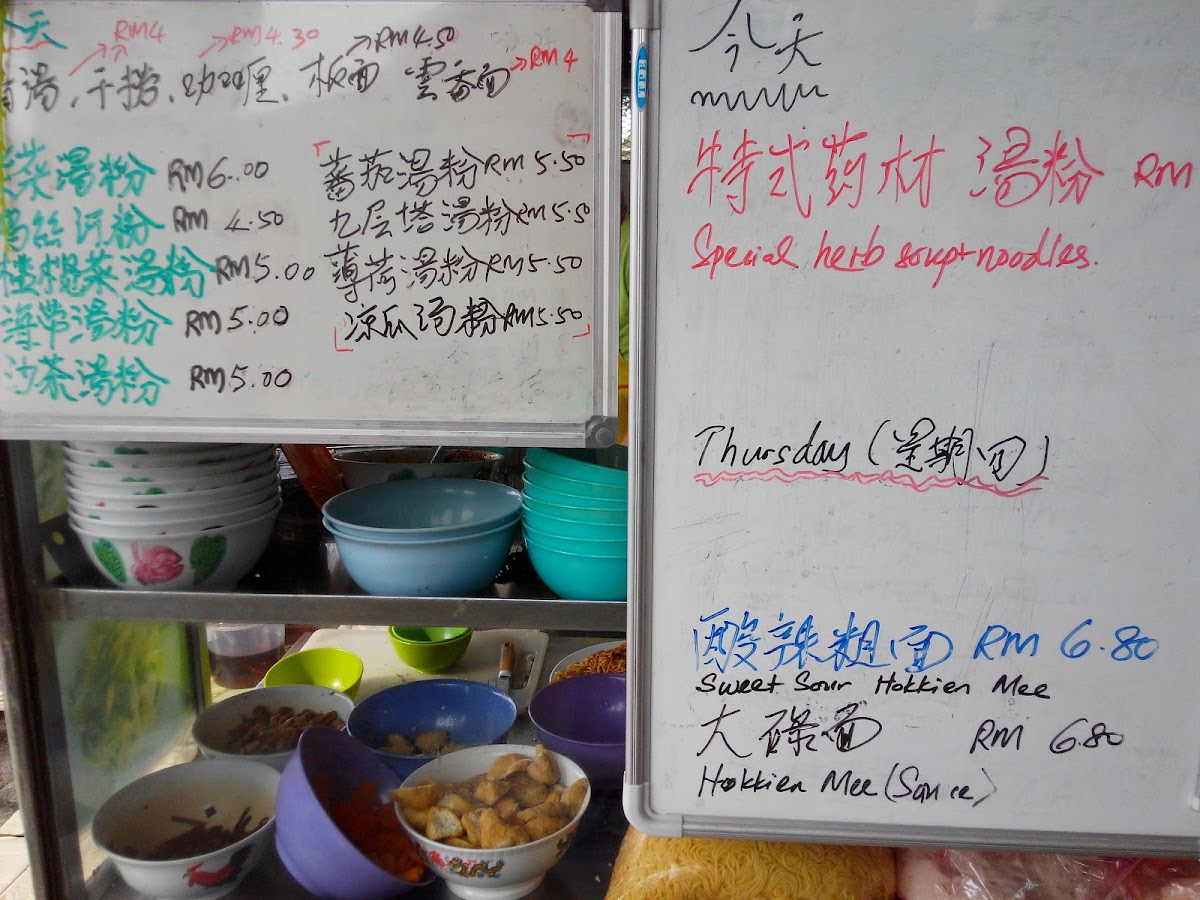 今天
RM4 RM4.30 RM4.50
湯,干撈,咖喱,板面 雲吞面 RM4
菜湯粉 RM6.00
河粉 RM 4.50
橄榄菜湯粉 RM5.00
海带湯粉 RM5.00
沙茶湯粉 RM5.00
蕃茄湯粉 RM5.50
九层塔湯粉 RM5.50
薄荷湯粉 RM5.50
凉瓜汤粉 RM5.50
TPE
今天
特式药材 湯粉 RM
Special herb soup+noodles.
Thursday (星期四)
酸辣粗面 RM 6.80
Sweet Sour Hokkien Mee
大碌面 RM 6.80
Hokkien Mee (Sauce)